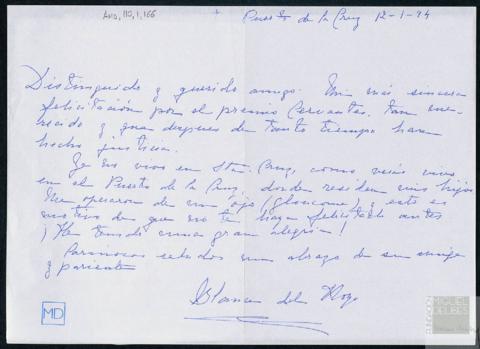 AMD, 110, 1, 166
+ Puerto de la Cruz 12-1-94
Distinguido y querido amigo. Mi más sincera
felicitación por el premio Cervantes. Tan me-
recido y que despues de tanto tiempo han
hecho justicia.
Ya no vivo en Sta. Cruz, como verás vivo
en el Puerto de la Cruz, donde residen mis hijos
Me operaron de un ojo (glaucoma) y este es
motivo de que no te haya felicitado antes
¡He tenido una gran alegria!
Cariñosos saludos un abrazo de su amiga
y pariente
Blanca del Hoyo
MD
MIGUEL
DELIBES